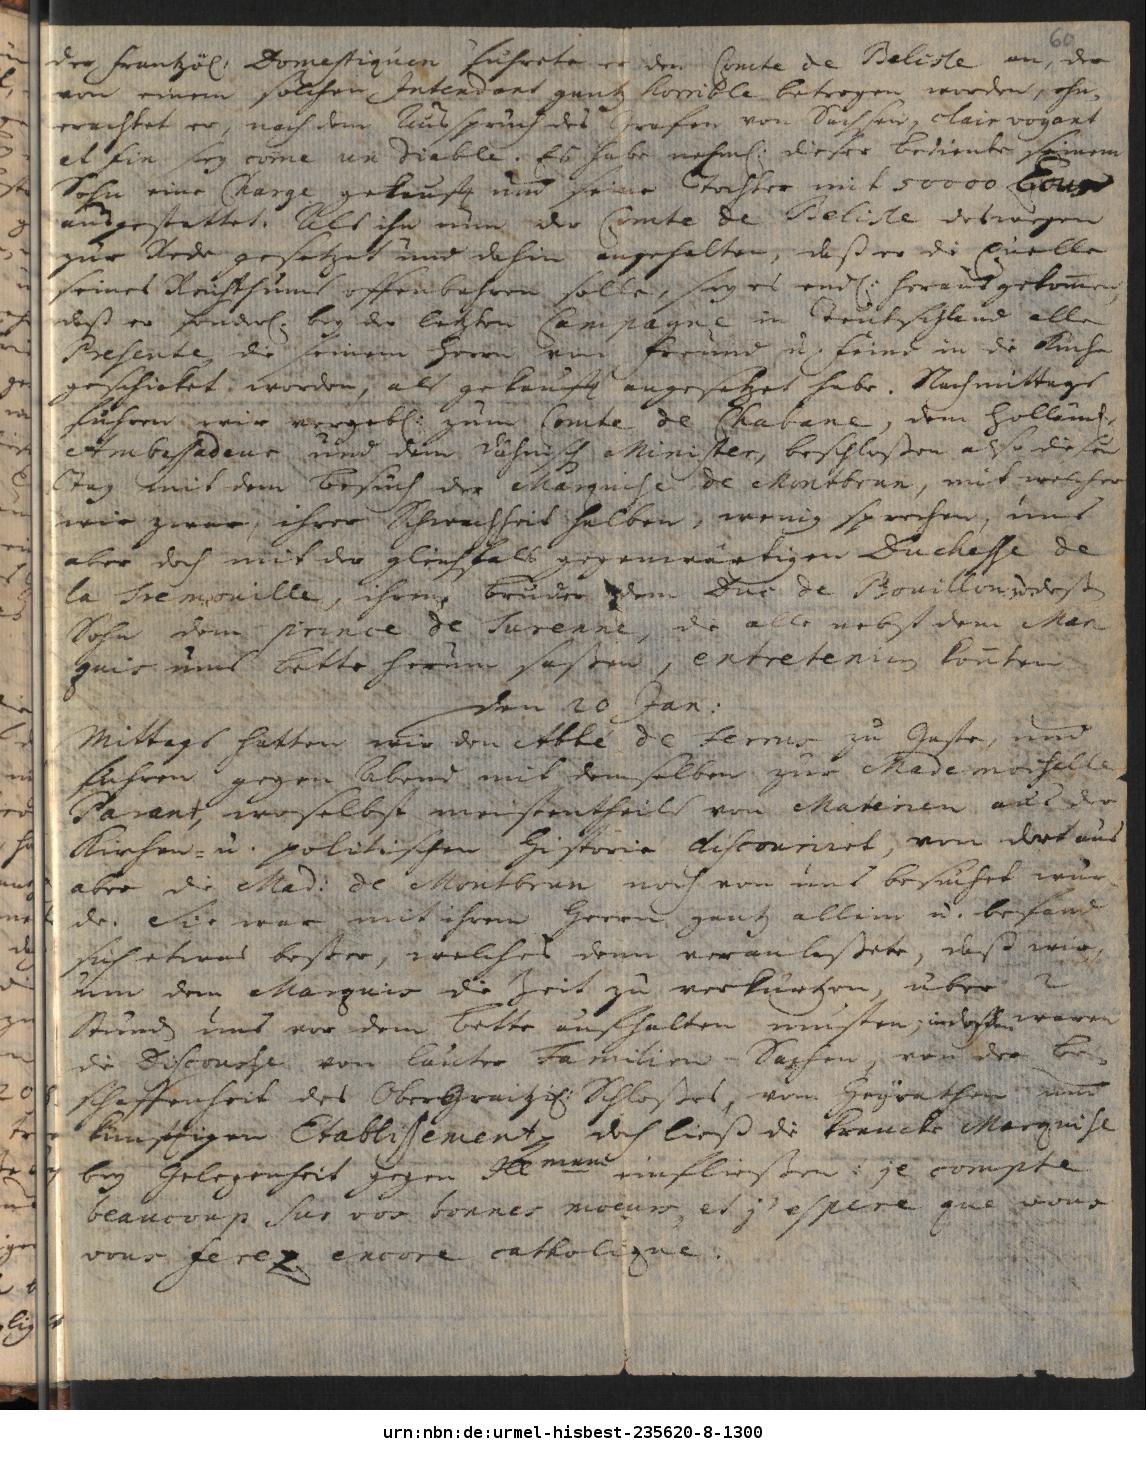 60
der frantzös: Domestiquen führete er den Comte de Belisle an, der
von einem solchen Intendant gantz horrible betrogen worden, ohn-
erachtet er, nach dem Ausspruch des Grafen von Sachsen, clairvoyant
et fin sey come un diable. Es habe nehml: dieser Bediente seinem
Sohn eine Charge gekaufft und seine Tochter mit 50000
ausgestattet. Als ihn nun der Comte de Belisle deswegen
zur Rede gesetzet und dahin angehalten, daß er die Quelle
seines Reichthums offenbahren solle, sey es endl: herausgekommen,
daß er sonderl: bey der letzten Campagne in Teutschland alle
Presente, die seinem Herrn von Freund u. Feind in die Küche
geschicket worden, als gekaufft angesetzet habe. Nachmittags
fuhren wir vergebl: zum Comte de Chabane, dem Holländ:
Ambassadeur und dem Dähnisch Minister, beschloßen also diesen
Tag mit dem Besuch der Marquise de Montbrun, mit welcher
wir zwar, ihrer Schwachheit halben, wenig sprechen, uns
aber doch mit der gleichfalls gegenwärtigen Duchesse de
la Tremouille, ihrem Bruder dem Duc de Bouillon, u deß
Sohn dem prince de Turenne, die alle nebst dem Mar
quis ums Bette herum saßen, entreteniren konten
den 20 Jan:
Mittags hatten wir den Abbé de Ternus zu Gaste, und
fuhren gegen Abend mit demselben zur Mademoiselle
Parant, woselbst meistentheils von Materien aus der
Kirchen- u. politischen Historie discouriret, von dort aus
aber die Mad: de Montbrun noch von uns besuchet wur-
de. Sie war mit ihrem Herrn gantz allein u. befand
sich etwas beßer, welches denn veranlaßete, daß wir,
um dem Marquis die Zeit zu verkürtzen, über 2
Stund uns vor dem Bette aufhalten musten, indessen waren
die Discourse von lauter Familien-Sachen, von der Be-
schaffenheit des OberGraitzis: Schloßes, vom Heyrathen und
künfftigen Etablissement, doch ließ die krancke Marquise
bey Gelegenheit gegen einfließen: je compte
beaucoup sur vos bonnes moeurs, et j'espere que vous
vous ferez encore catholique.
urn:nbn:de:urmel-hisbest-235620-8-1300